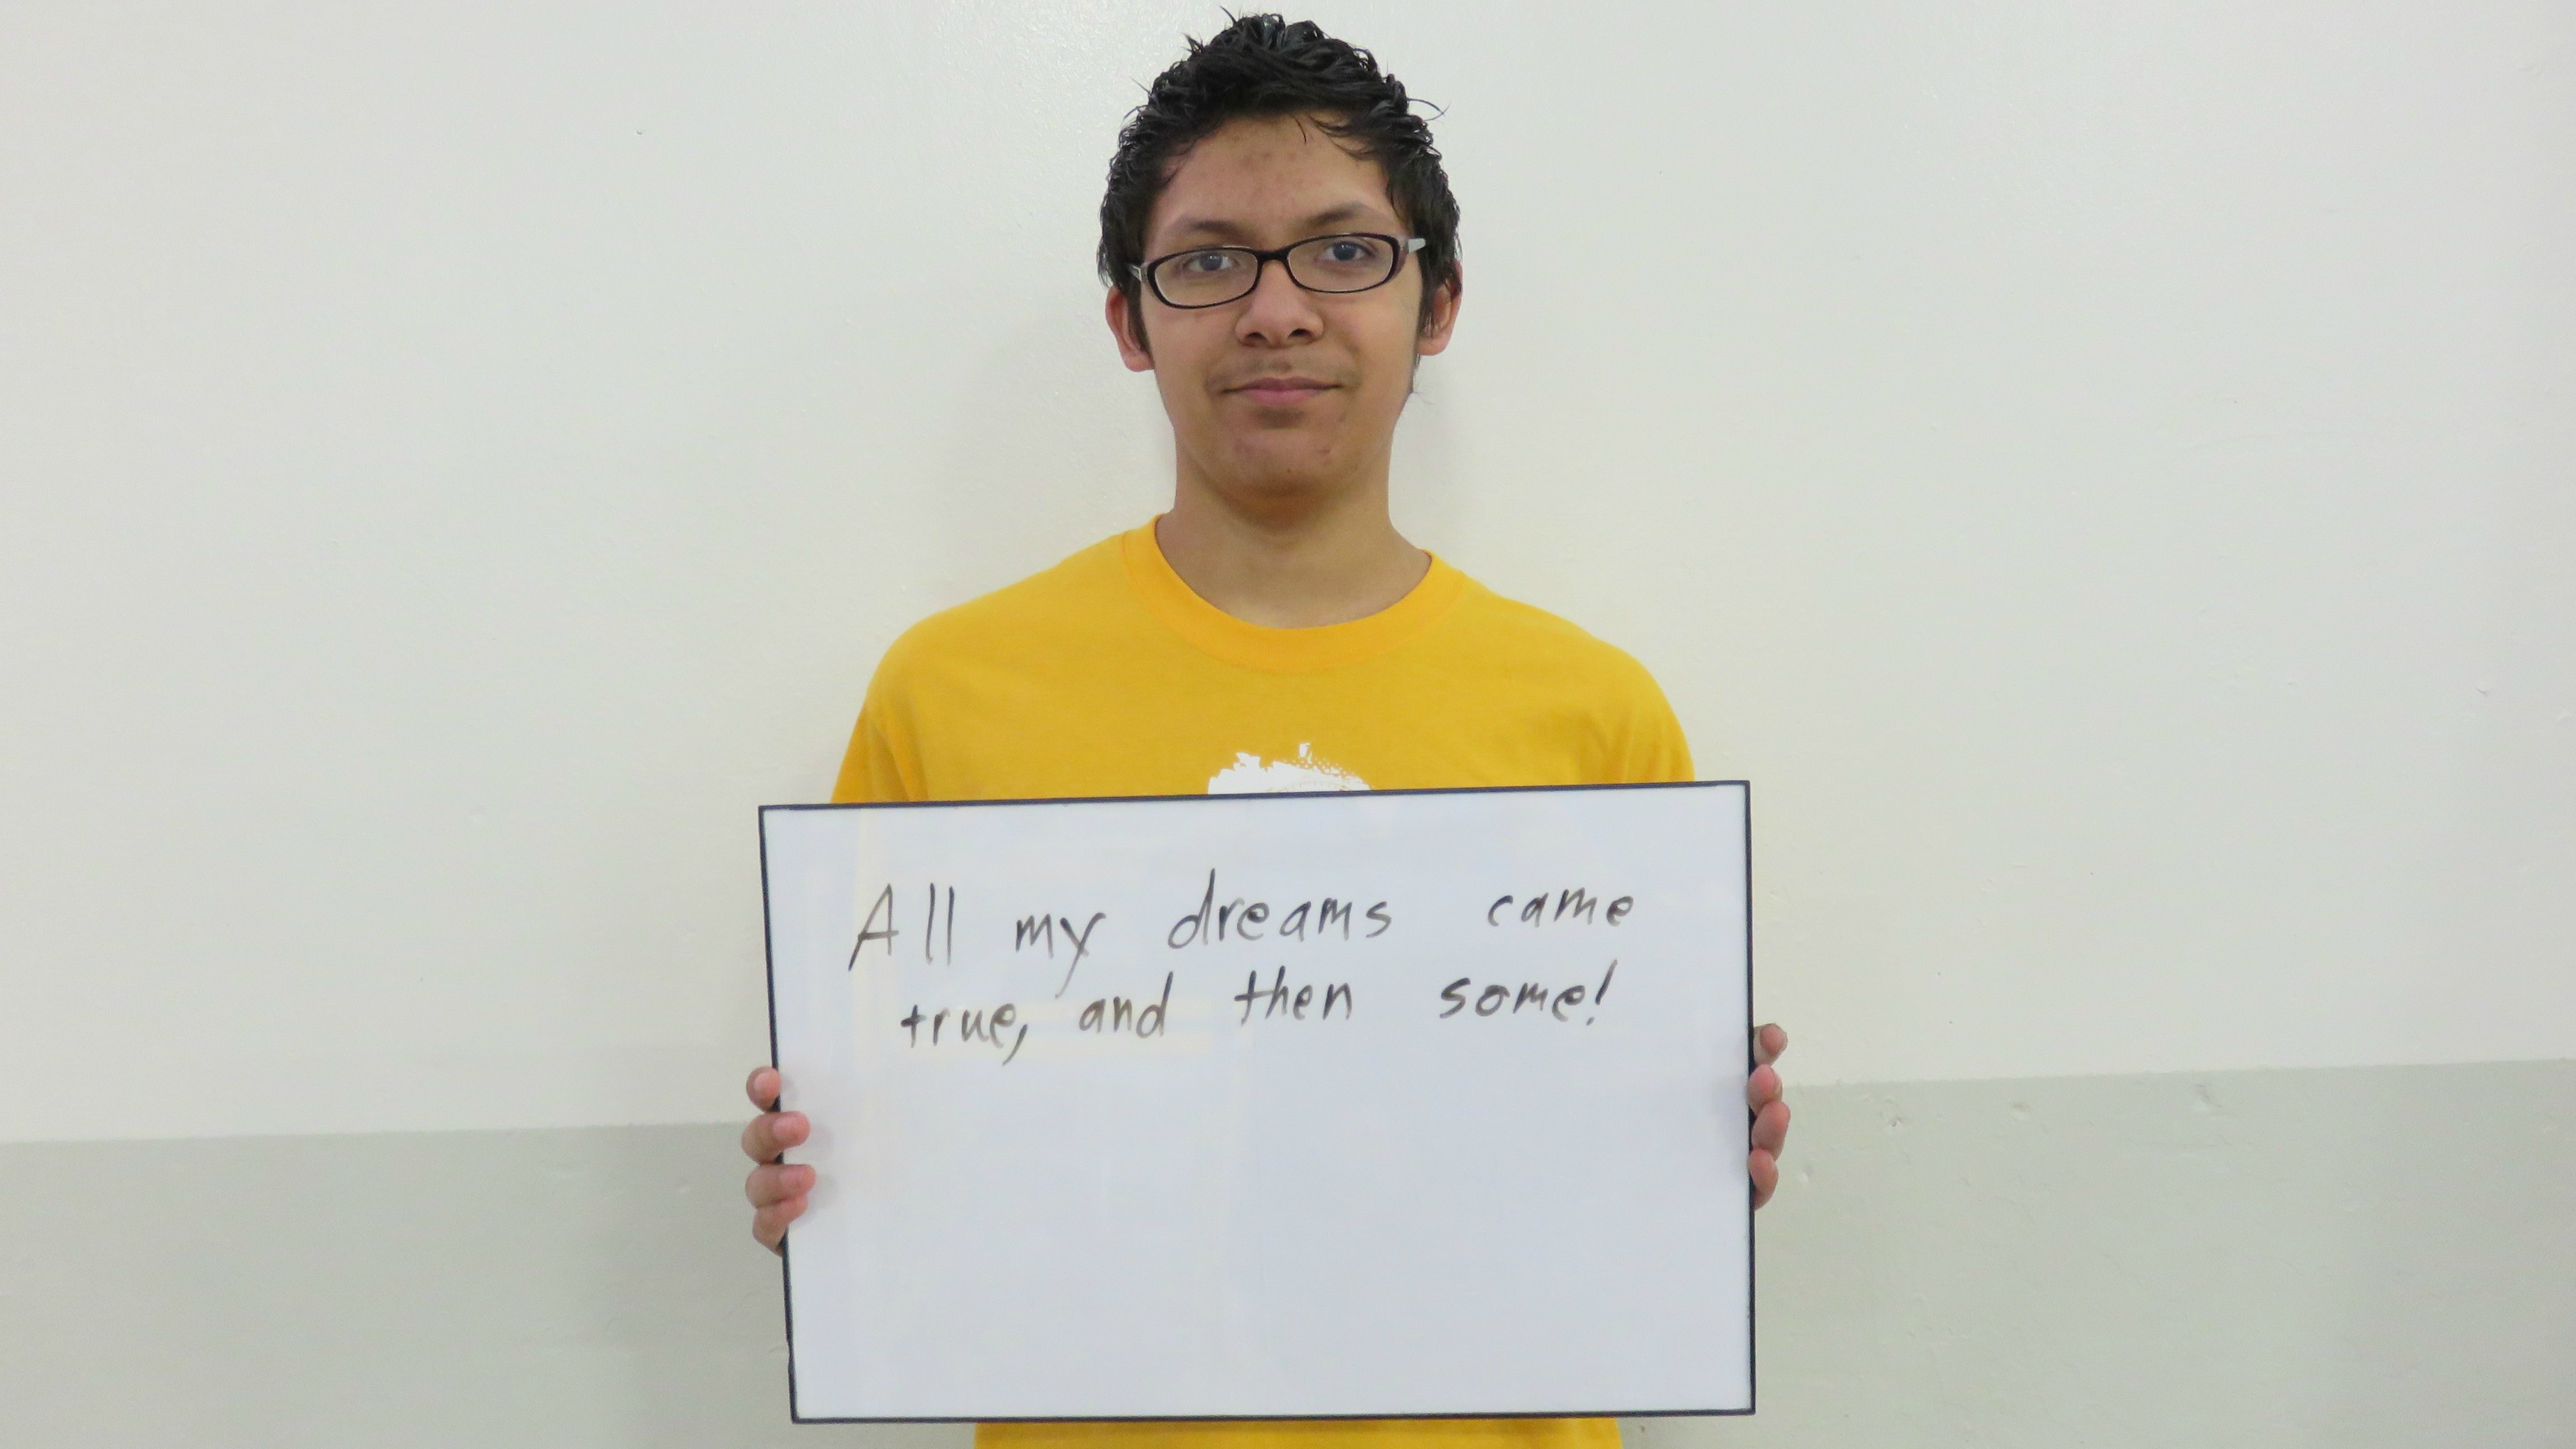 All my dreams came
true, and then some!